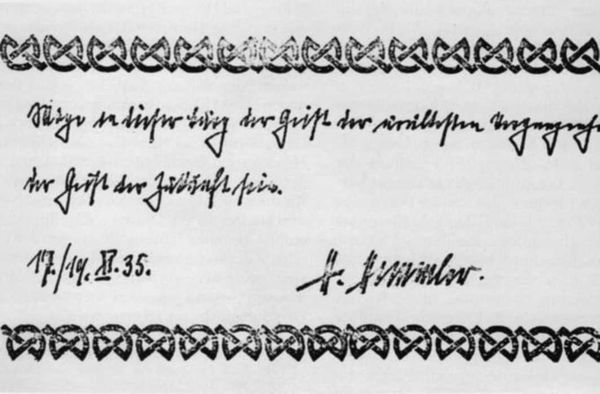 Möge in dieser Burg der Geist der uraltesten Vergangenhe
der Geist der Zukunft sein.
17./19. XI. 35.
H. Himmler.